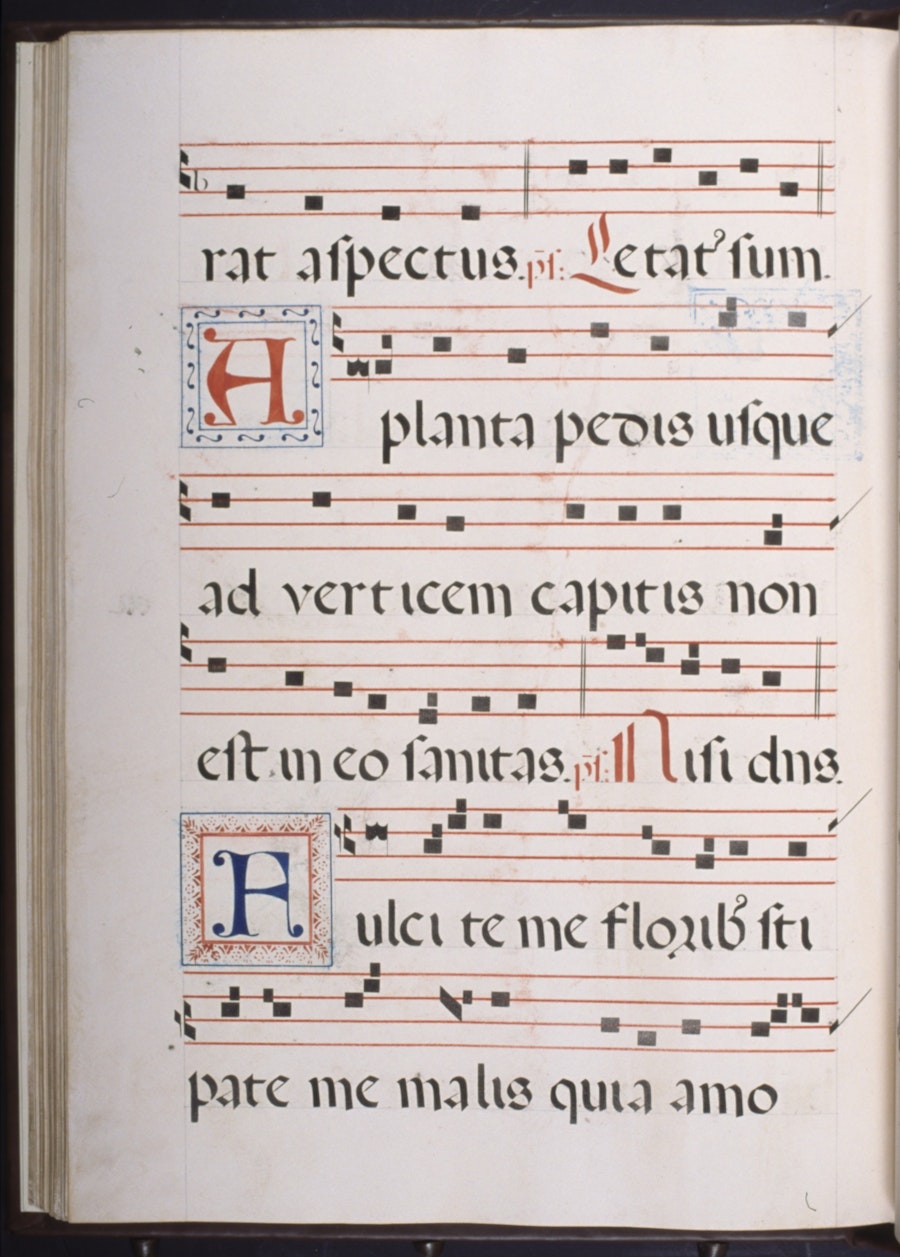 rat aſpectus. ps̄: Letat᾽ ſum.
A planta pedis uſque
ad verticem capitis non
eſt in eo ſanitas. ps̄: Niſi dn̄s.
Fulcite me florib᾽ ſti
pate me malis quia amo